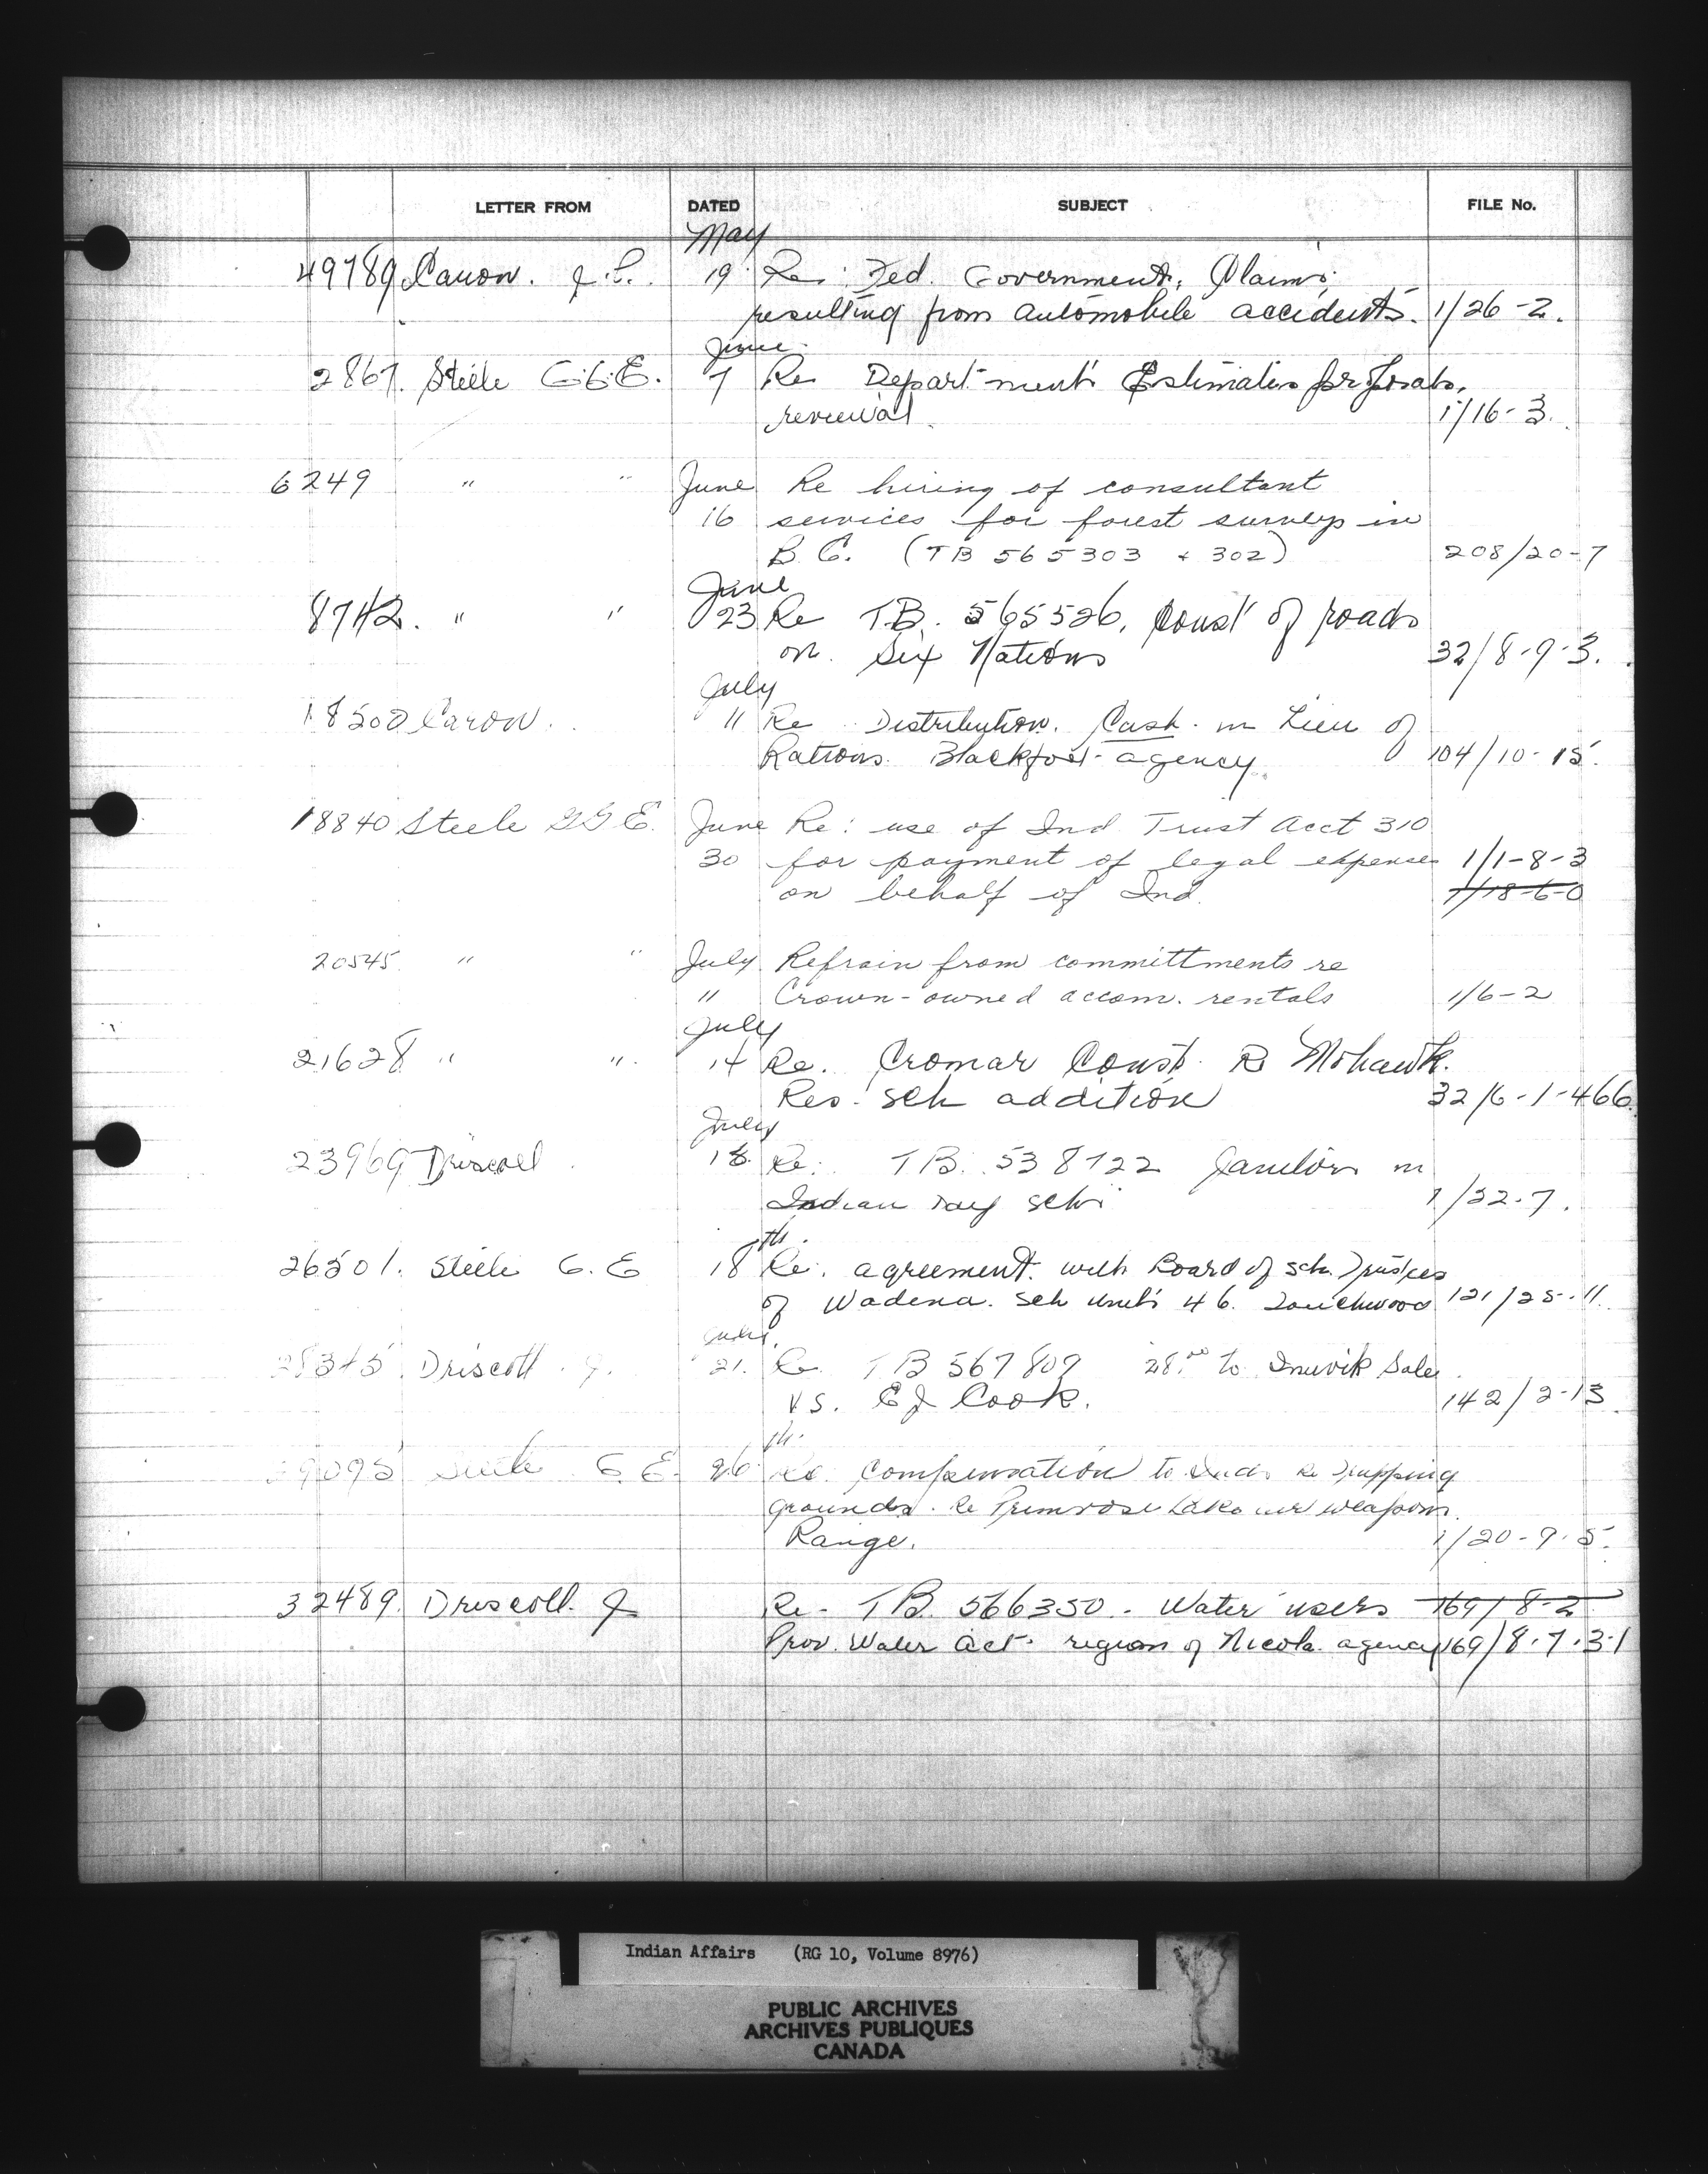 LETTER FROM DATED SUBJECT FILE No.
May
49789 Caron. J.C. 19 Re: Fed. Government, Claims,
resulting from automobile accidents. 1/26-2.
June
2867. Steele G.G.E. 7 Re Department's Estimates for
revewal. 1/16-3.
6249 " " June Re hiring of consultant
16 services for forest surveys in
B.C. (TB 565303 + 302) 208/20-7
June
8742. " " 23 Re T.B. 565526, Const of roads
on Six Nations 32/8-9-3.
July
18500 Caron. 11 Re Distribution. Cash in Lieu of
Rations. Blackfoot agency. 104/10-15.
18840 Steele G G E. June Re: use of Ind Trust Acct 310
30 for payment of legal expenses 1/1-8-3
on behalf of Ind. 1/18-6-0
20545 " " July Refrain from committments re
11 Crown-owned accom. rentals 1/6-2
July
21628 " " 14 Re. Cromar Const. R Mohawk.
Res. sch addition 32/6-1-466
July
23969 Driscoll 18. Re: TB. 538722 Janitors in
Indian Day schs 1/32-7.
th.
26501. Steele G.E 18 Re. agreement with Board of sch. Trustees
of Wadena. Sch Units 46. Touchwood 121/25-11.
July.
28345 Driscoll. J. 21. Re. TB 567809 to Inuvik Sale
vs. EJ Cook. 142/2-13
th.
29095 Steele G.E. 26 Re. Compensation to Inds Re Trapping
grounds. Re Primrose Lake air weapons.
Range. 1/20-9-5.
32489. Driscoll. J Re- TB. 566350. Water users 169/8-2
Prov. Water Act. region of Nicola agency 169/8-7-3-1
Indian Affairs (RG 10, Volume 8976)
PUBLIC ARCHIVES
ARCHIVES PUBLIQUES
CANADA